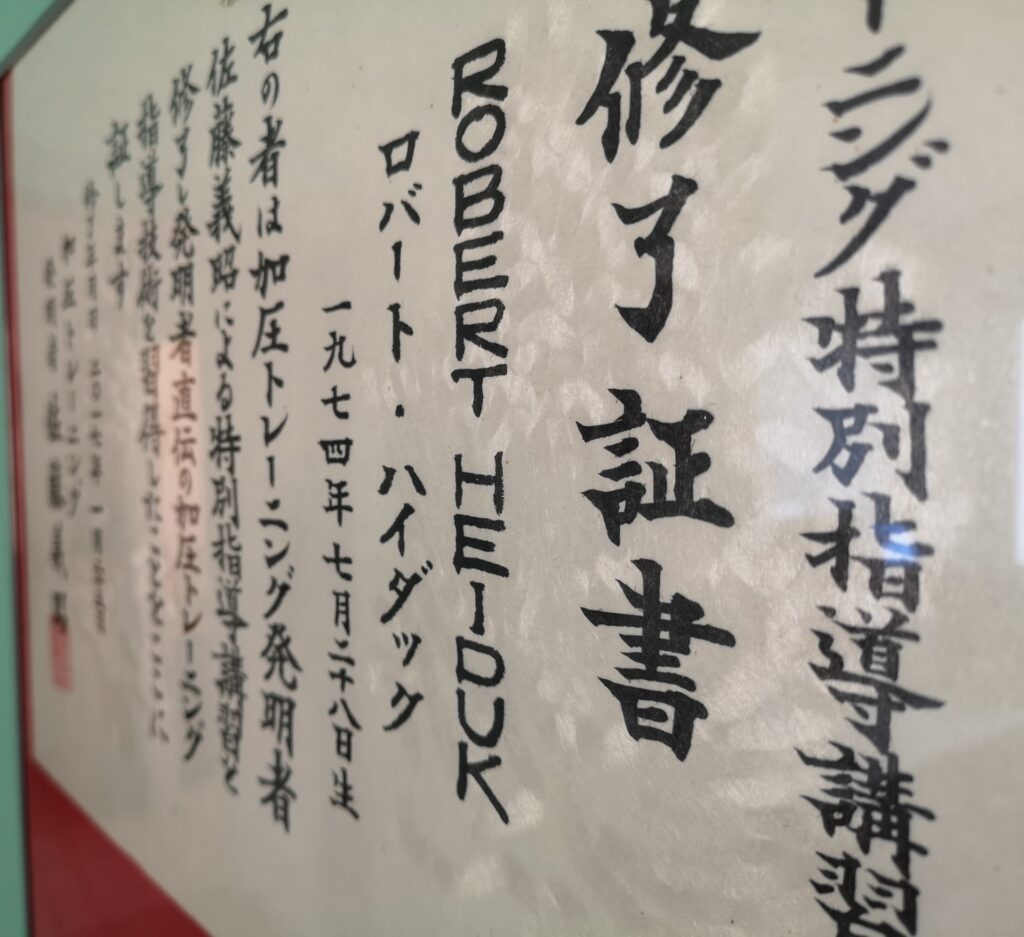 ーニング特別指導講習
修了証書
ROBERT HEIDUK
ロバート・ハイダック
一九七四年七月二十八日生
右の者は加圧トレーニング発明者
佐藤義昭による特別指導講習を
修了し発明者直伝の加圧トレーニング
指導技術を習得したことをここに
証します
二〇一七年一月
加圧トレーニング
発明者 佐藤義昭